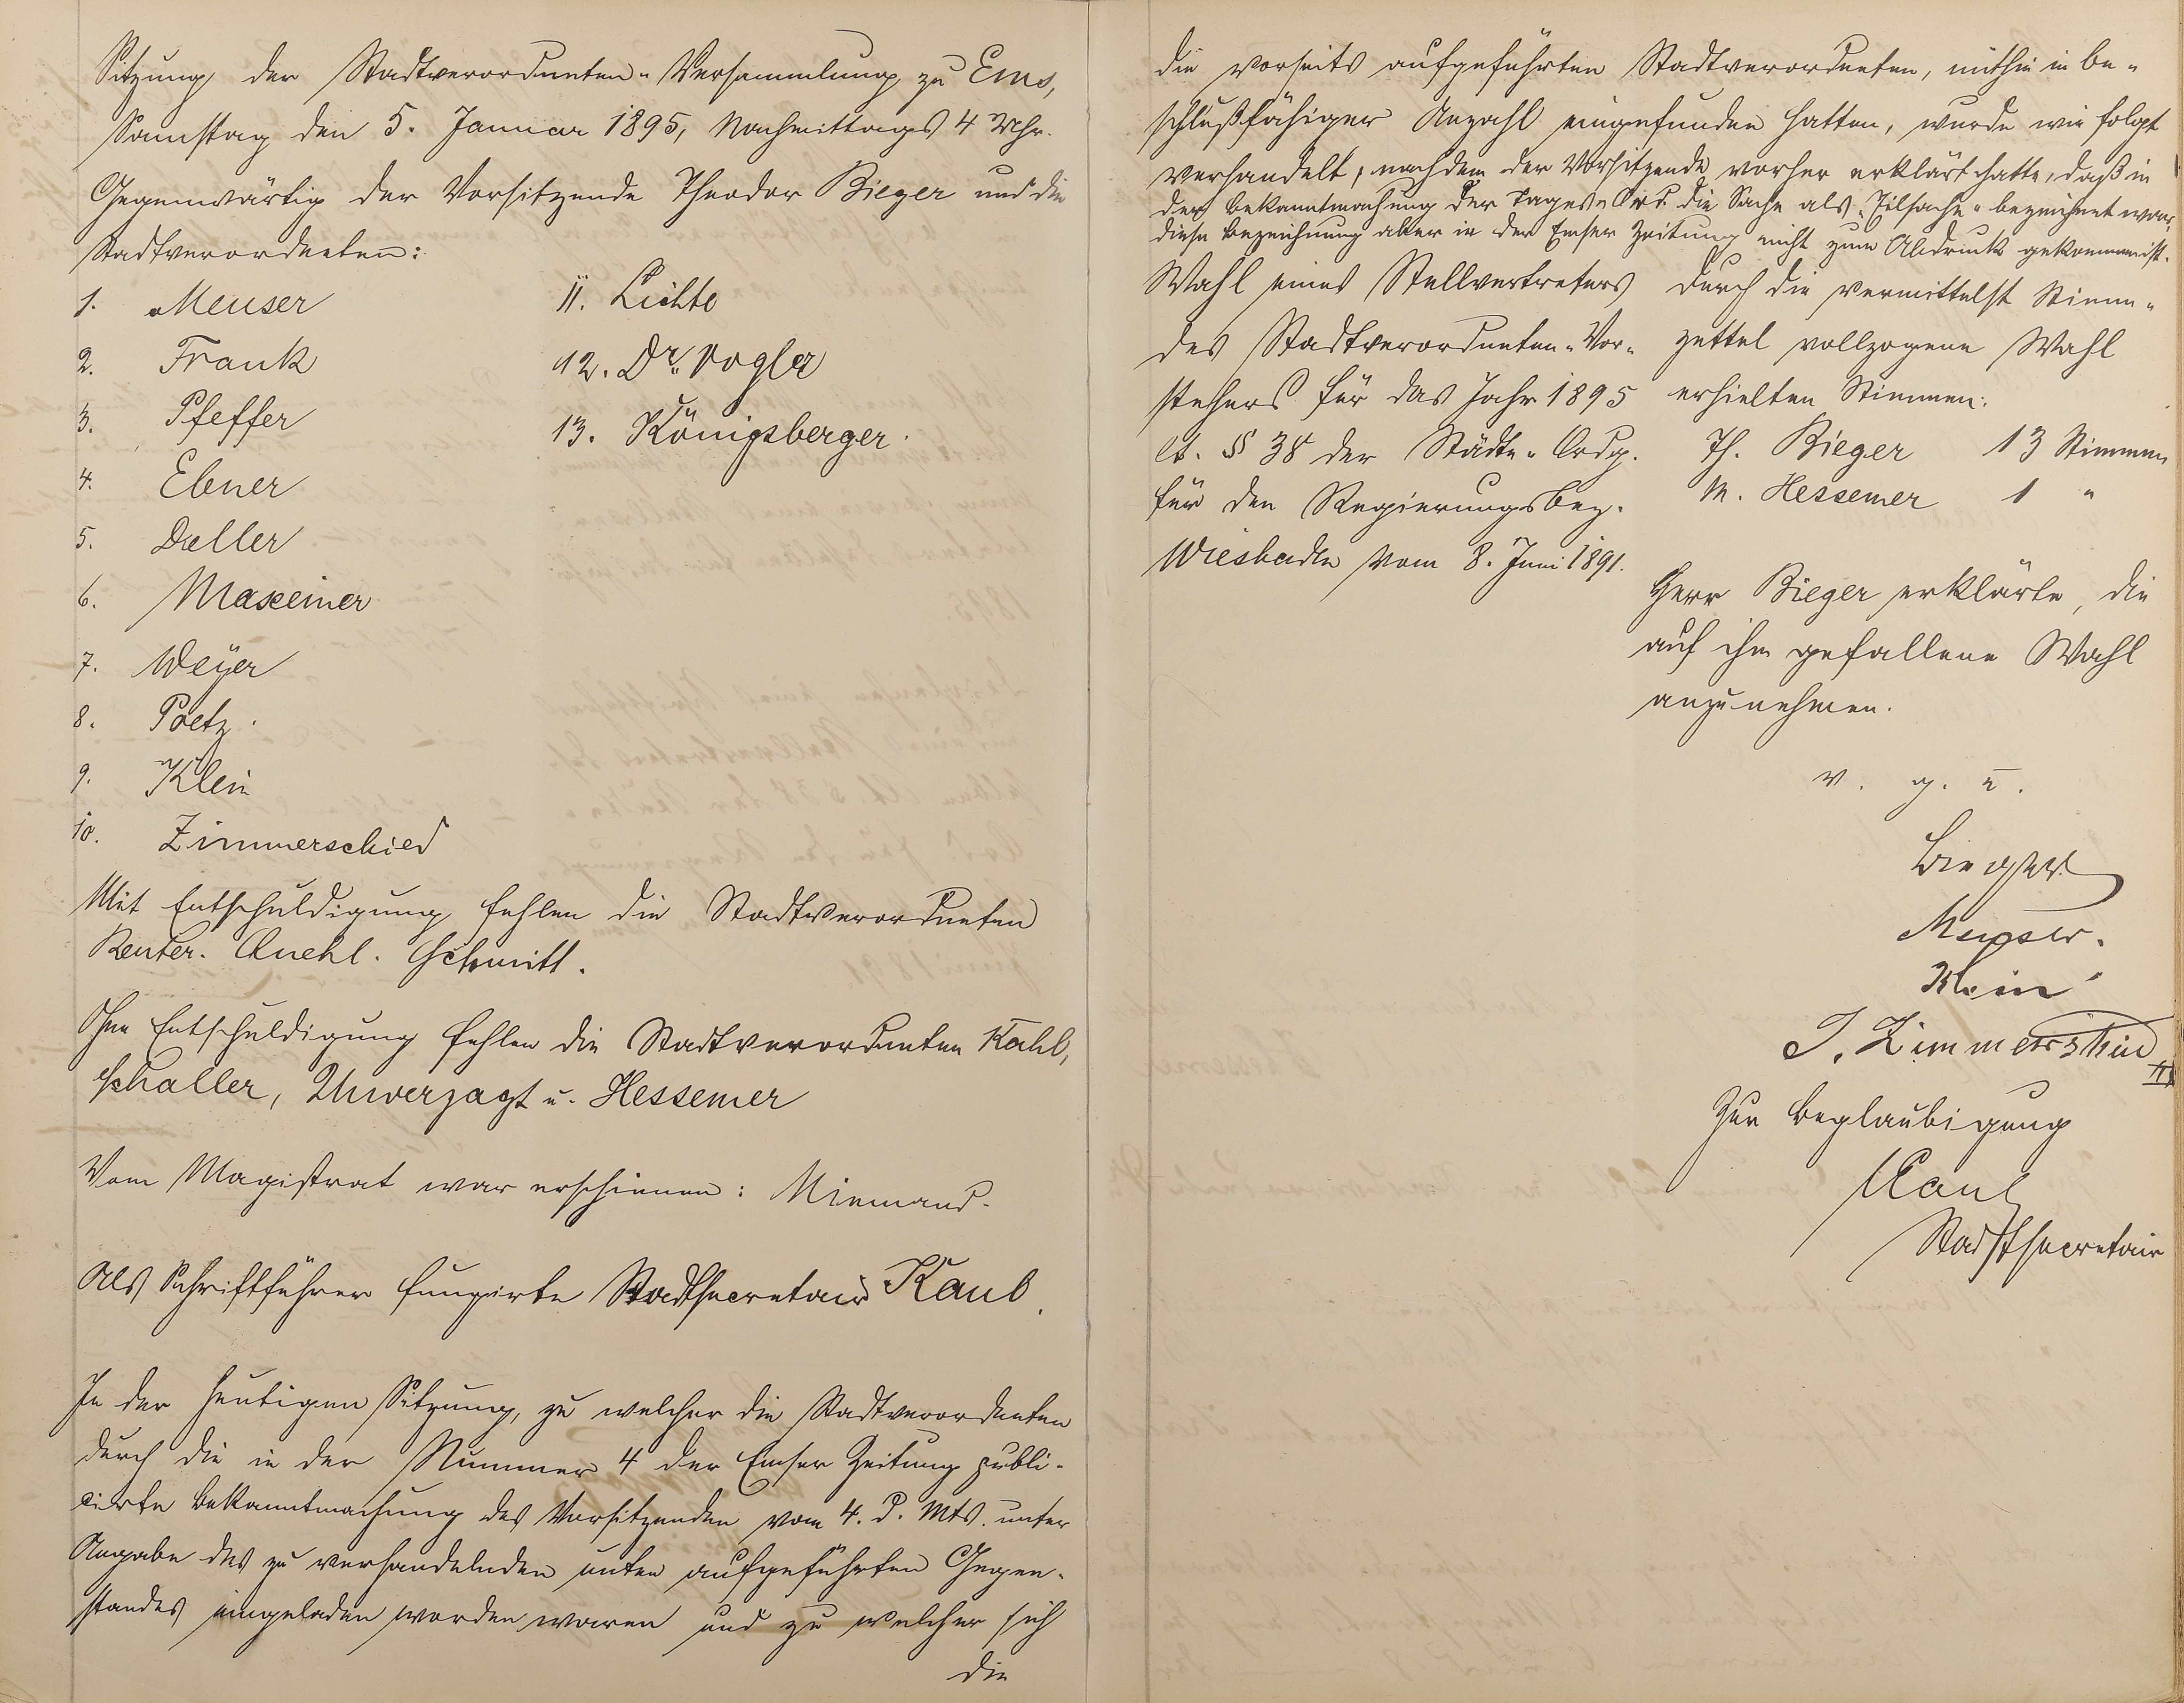 Sitzung der Stadtverordneten-Versammlung zu Ems,
Samstag den 5. Januar 1895, Nachmittags 4 Uhr.
Gegenwärtig der Vorsitzende Theodor Bieger und die
Stadtverordneten:
1. Meuser
2. Frank
3. Pfeffer
4. Ebner
5. Daller
6. Maxeiner
7. Weyer
8. Poetz.
9. Klein
10. Zimmerschied
11. Lichte
12. Dr. Vogler
13. Königsberger.
Mit Entschuldigung fehlen die Stadtverordneten
Reuter. Quehl. Schmitt.
Ohne Entschuldigung fehlen die Stadtverordneten Kahl,
Schaller, Unverzagt u. Hessemer
Vom Magistrat war erschienen: Niemand.
Als Schriftführer fungirte Stadtsecretair Kaul.
In der heutigen Sitzung, zu welcher die Stadtverordneten
durch die in der Nummer 4 der Emser Zeitung publi-
cirte Bekanntmachung des Vorsitzenden vom 4. d. Mts. unter
Angabe des zu verhandelnden unten aufgeführten Gegen-
standes eingeladen worden waren und zu welcher sich
die
die vorseits aufgeführten Stadtverordneten, mithin in be-
schlußfähiger Anzahl eingefunden hatten, wurde wie folgt
verhandelt, nachdem der Vorsitzende vorher erklärt hatte, daß in
der Bekanntmachung der Tages-Ord. die Sache als "Eilsache" bezeichnet war,
diese Bezeichnung aber in der Emser Zeitung nicht zum Abdruck gekommen ist.
Wahl eines Stellvertreters
des Stadtverordneten-Vor-
stehers für das Jahr 1895
lt. § 38 der Städte-Ordg.
für den Regierungsbez.
Wiesbaden vom 8. Juni 1891.
Durch die vermittelst Stimm-
zettel vollzogene Wahl
erhielten Stimmen:
Th. Bieger 13 Stimmen
M. Hessemer 1 "
Herr Bieger erklärte, die
auf ihn gefallene Wahl
anzunehmen.
v. g. u.
Bieger
Meuser.
Klein
J. Zimmerschied
III
Zur Beglaubigung
Kaul
Stadtsecretair